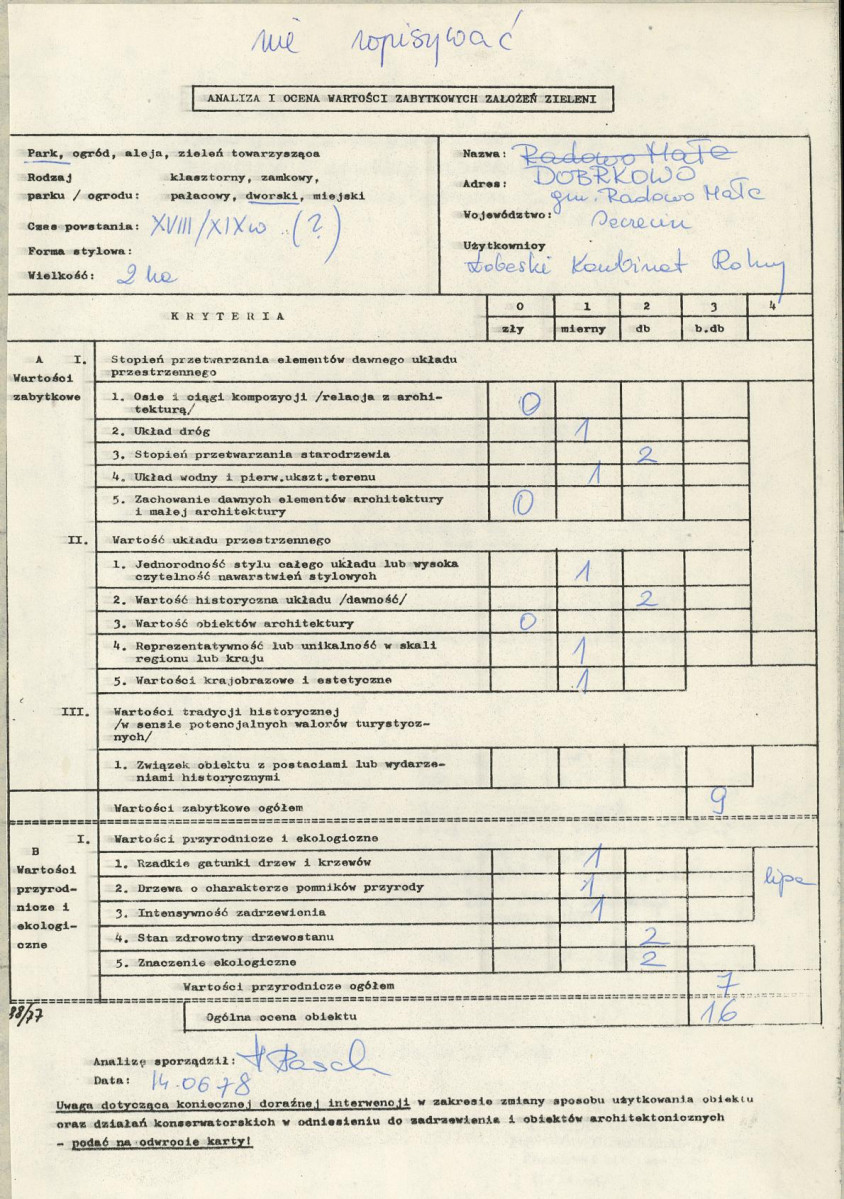 nie wpisywać
ANALIZA I OCENA WARTOŚCI ZABYTKOWYCH ZAŁOŻEŃ ZIELENI
Park, ogród, aleja, zieleń towarzysząca
Rodzaj klasztorny, zamkowy,
parku / ogrodu: pałacowy, dworski, miejski
Czas powstania: XVIII/XIXw (?)
Forma stylowa:
Wielkość: 2 ha
Nazwa: Radowo Małe
DOBRKOWO
Adres: gm. Radowo Małe
Województwo: Szczecin
Użytkownicy
Łobeski Kombinat Rolny
KRYTERIA
0 1 2 3 4
zły mierny db b.db
A I. Stopień przetwarzania elementów dawnego układu
przestrzennego
Wartości
zabytkowe
1. Osie i ciągi kompozycji /relacja z archi-
tekturą/ 0
2. Układ dróg 1
3. Stopień przetwarzania starodrzewia 2
4. Układ wodny i pierw.ukszt.terenu 1
5. Zachowanie dawnych elementów architektury
i małej architektury 0
II. Wartość układu przestrzennego
1. Jednorodność stylu całego układu lub wysoka
czytelność nawarstwień stylowych 1
2. Wartość historyczna układu /dawność/ 2
3. Wartość obiektów architektury 0
4. Reprezentatywność lub unikalność w skali
regionu lub kraju 1
5. Wartości krajobrazowe i estetyczne 1
III. Wartości tradycji historycznej
/w sensie potencjalnych walorów turystycz-
nych/
1. Związek obiektu z postaciami lub wydarze-
niami historycznymi
Wartości zabytkowe ogółem 9
B I. Wartości przyrodnicze i ekologiczne
Wartości
przyrod-
nicze i
ekologi-
czne
1. Rzadkie gatunki drzew i krzewów 1
2. Drzewa o charakterze pomników przyrody 1 lipa
3. Intensywność zadrzewienia 1
4. Stan zdrowotny drzewostanu 2
5. Znaczenie ekologiczne 2
Wartości przyrodnicze ogółem 7
38/77
Ogólna ocena obiektu 16
Analizę sporządził: H Rasch
Data: 14.06.78
Uwaga dotycząca koniecznej doraźnej interwencji w zakresie zmiany sposobu użytkowania obiektu
oraz działań konserwatorskich w odniesieniu do zadrzewienia i obiektów architektonicznych
- podać na odwrocie karty!